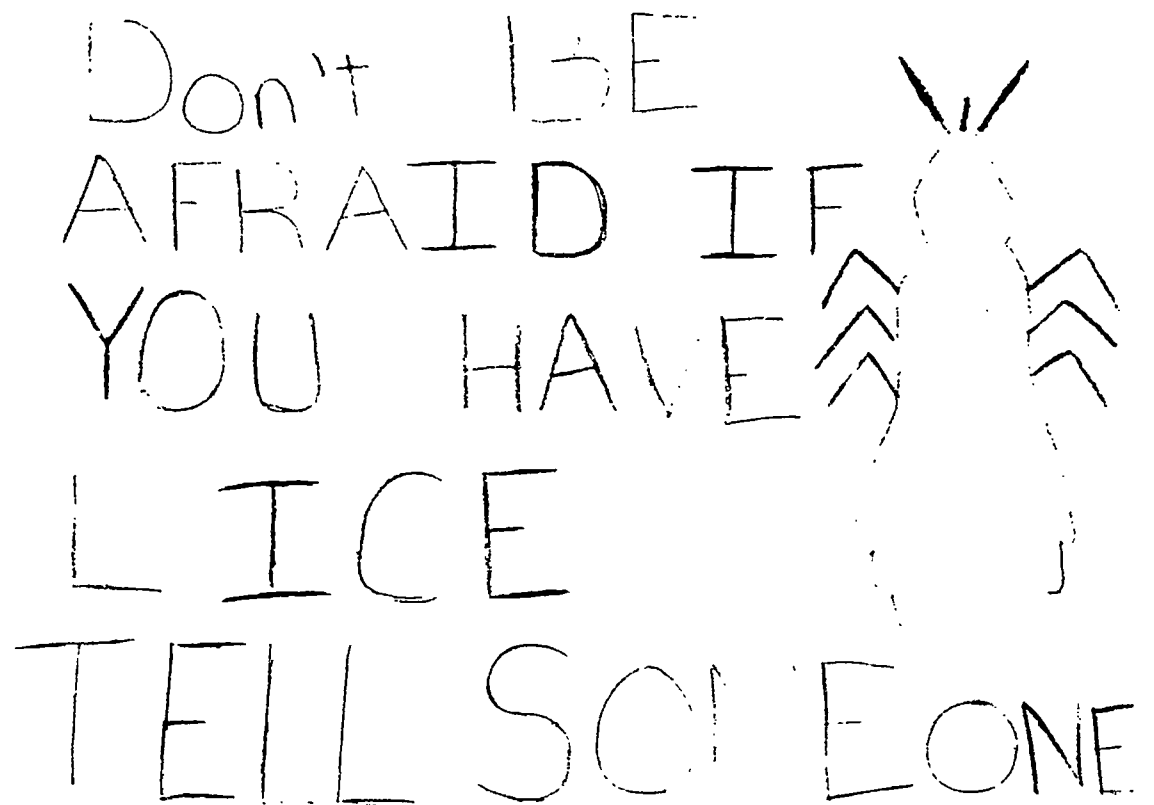 Don't BE
AFRAID IF
YOU HAVE
LICE
TELL SOMEONE